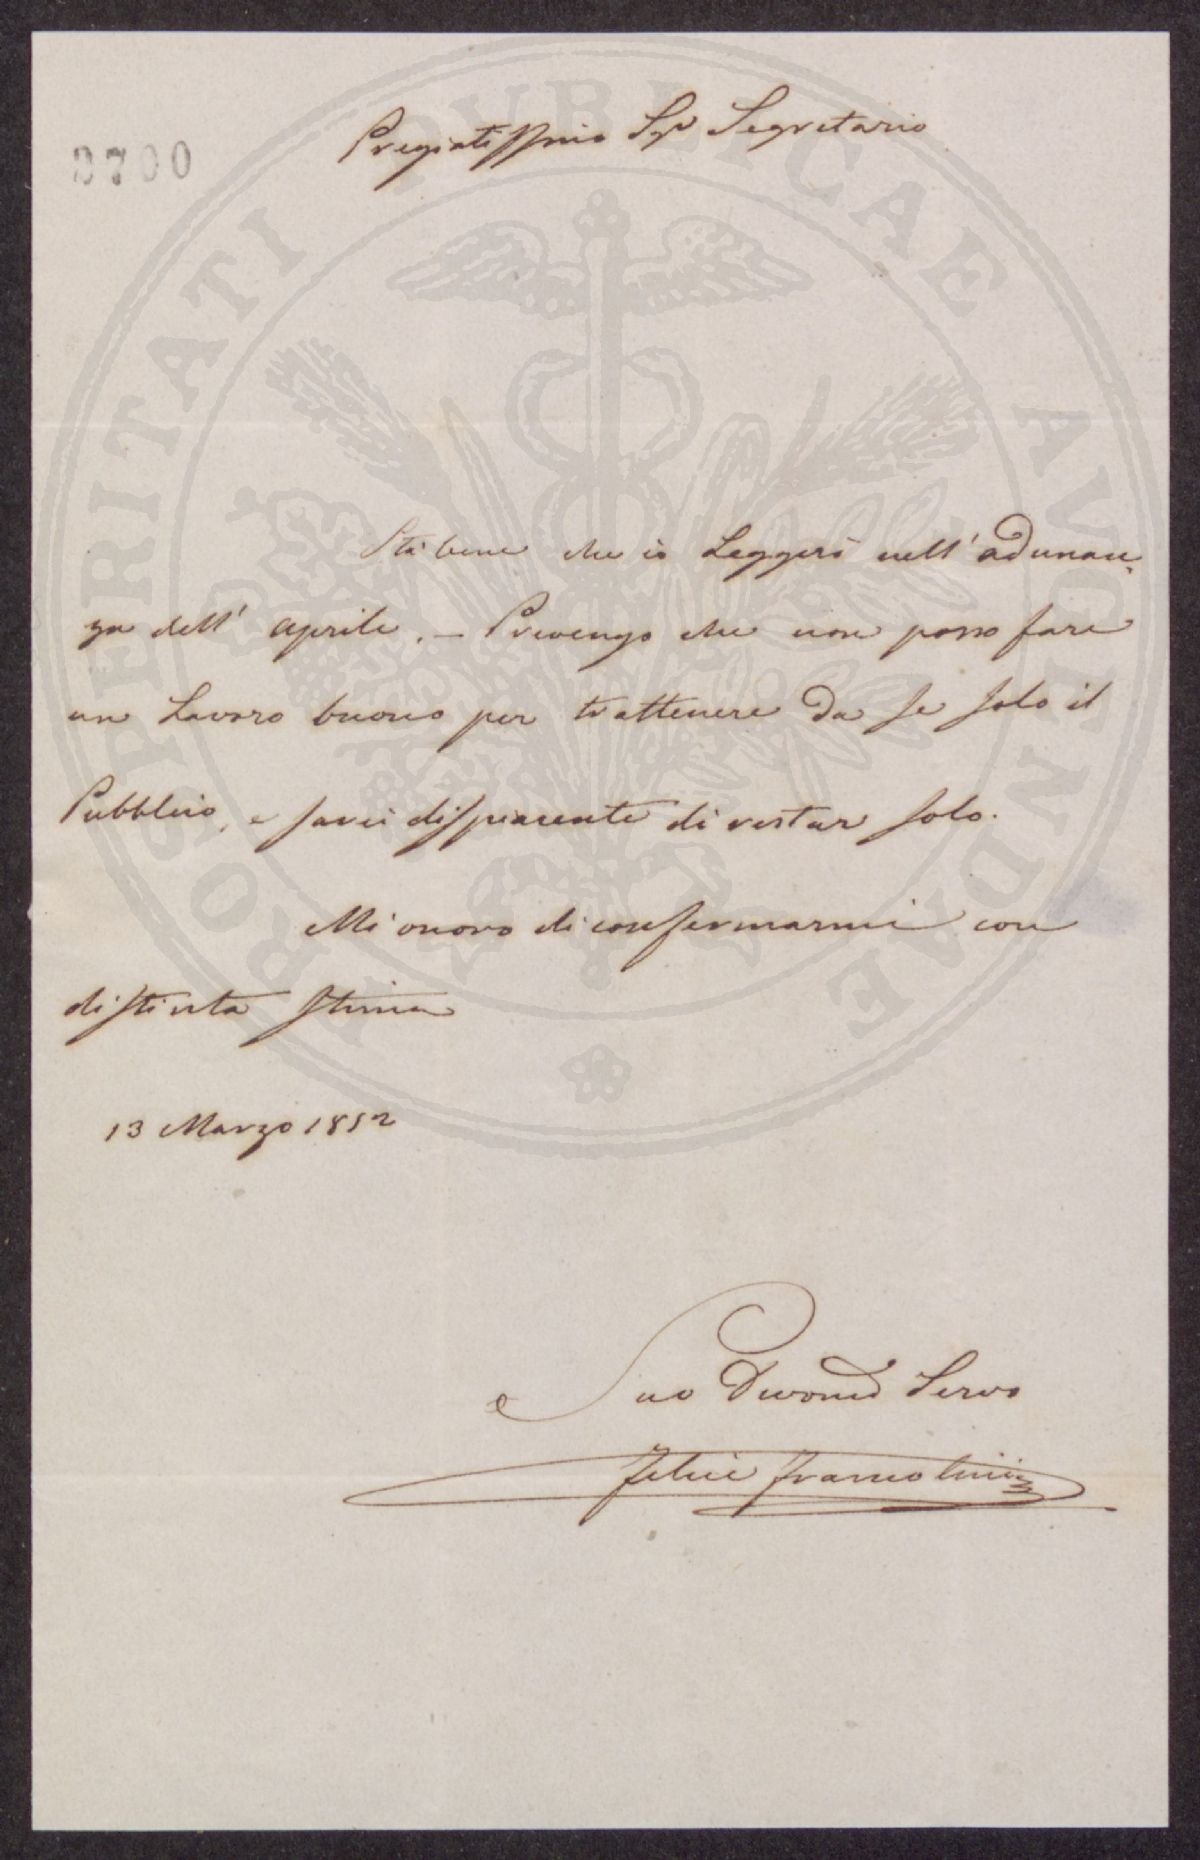 3700
Pregiatissimo Sigr Segretario
Sta bene che io Leggerò nell'adunan-
za dell'aprile. — Prevengo che non posso fare
un Lavoro buono per trattenere da se solo il
Pubblico, e sarei dispiacente di restar solo.
Mi onoro di confermarmi con
distinta stima
13 Marzo 1852
Suo Devotmo Servo
Felice Francolini
PROSPERITATI PUBLICAE AUGENDAE